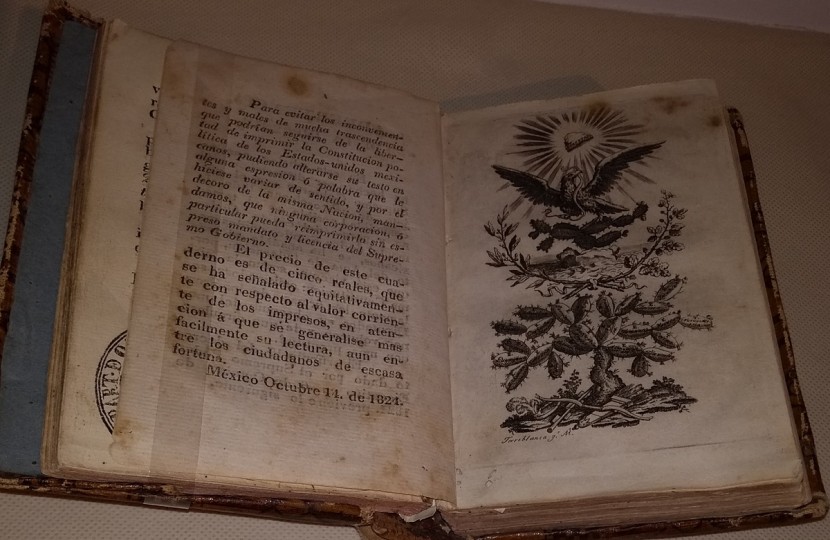 Para evitar los inconvenien-
tes y males de mucha trascendencia
que podrian seguirse de la liber-
tad de imprimir la Constitucion po-
lítica de los Estados-unidos mexi-
canos, pudiendo alterarse su testo en
alguna expresion ó palabra que le
hiciese variar de sentido, y por el
decoro de la misma Nacion, man-
damos, que ninguna corporacion, ó
particular pueda reimprimirla sin es-
preso mandato y licencia del Supre-
mo Gobierno.
El precio de este cua-
derno es de cinco reales, que
se ha señalado equitativamen-
te con respecto al valor corrien-
te de los impresos, en aten-
cion á que se generalise mas
facilmente su lectura, aun en-
tre los ciudadanos de escasa
fortuna.
México Octubre 14. de 1824.